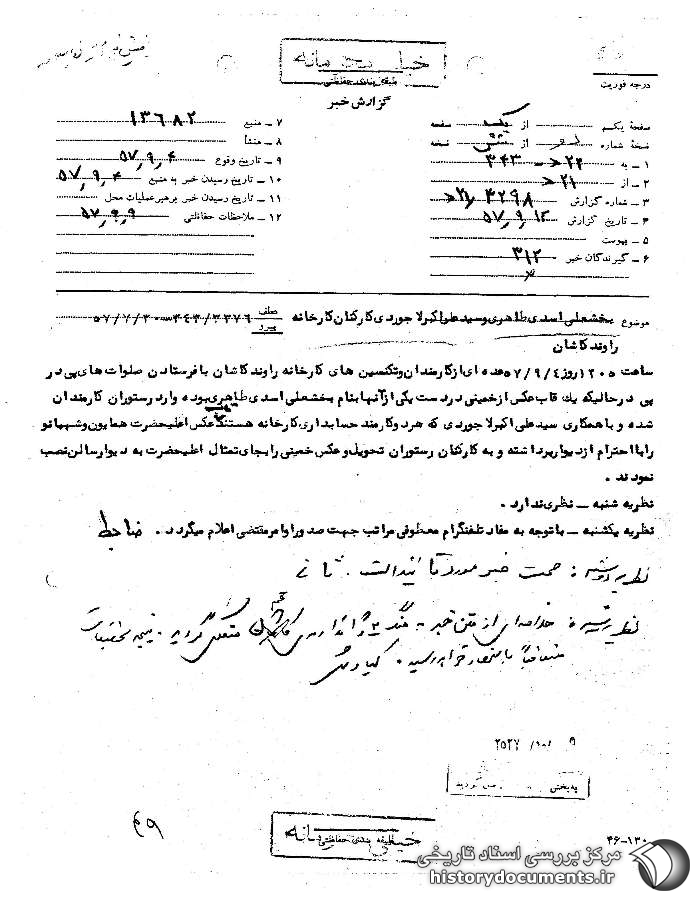 خیلی محرمانه
طبقه‌بندی حفاظتی
درجه فوریت
گزارش خبر
صفحه یکم از یک صفحه
نسخه شماره از شش نسخه
۱ ـ به ۳۴۳
۲ ـ از ۲۱ ه
۳ ـ شماره گزارش ۴۲۹۸ / ۲۱ ه
۴ ـ تاریخ گزارش ۵۷٫۹٫۱۲
۵ ـ پیوست
۶ ـ گیرندگان خبر ۳۱۲
۷ ـ منبع ۱۳۶۸۲
۸ ـ منشأ
۹ ـ تاریخ وقوع ۵۷٫۹٫۴
۱۰ ـ تاریخ رسیدن خبر به منبع ۵۷٫۹٫۴
۱۱ ـ تاریخ رسیدن خبر برهبرعملیات محل ۵۷٫۹٫۹
۱۲ ـ ملاحظات حفاظتی
موضوع بخشعلی اسدی طاهری وسید علی اکبرلاجوردی کارکنان کارخانه عطف پیرو ۳۴۳/۳۳۷۶ــ۵۷/۷/۳۰
راوند کاشان
ساعت ۱۲۰۵روز ۵۷/۹/۴عده ای ازکارمندان وتکنسین های کارخانه راوند کاشان با فرستادن صلوات های پی در
پی در حالیکه یك قاب عکس ازخمینی در دست یکی ازآنها بنام بخشعلی اسدی طاهری بوده وارد رستوران کارمندان
شده و با همکاری سید علی اکبرلاجوردی که هردوکارمند حسابداری کارخانه هستند عکس اعلیحضرت همایون وشهبانو
را با احترام از دیوار برداشته و به کارکنان رستوران تحویل وعکس خمینی رابجای تمثال اعلیحضرت به دیوارسالن نصب
نمودند .
نظریه شنبه ـ نظری ندارد .
نظریه یکشنبه ـ باتوجه به مفاد تلفنگرام معطوفی مراتب جهت صدور اوامر مقتضی اعلام میگردد . ضابط
نظریه دوشنبه : صحت خبر مورد تأئید است .
نظریه سه‌شنبه : خلاصه‌ای از متن خبر به هنگ ژاندارمری منعکس گردید . نتیجه تحقیقات
متعاقباً باستحضار خواهد رسید . کیاوش
۹ /۱۰/ ۲۵۳۷
۴۹
خیلی محرمانه
طبقه بندی حفاظتی
۴۶-۱۳۰
مرکز بررسی اسناد تاریخی
historydocuments.ir